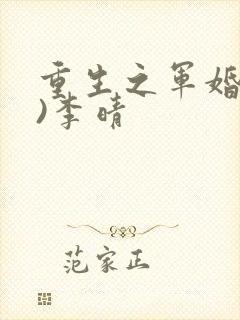 重生之军婚
)李晴
范家正